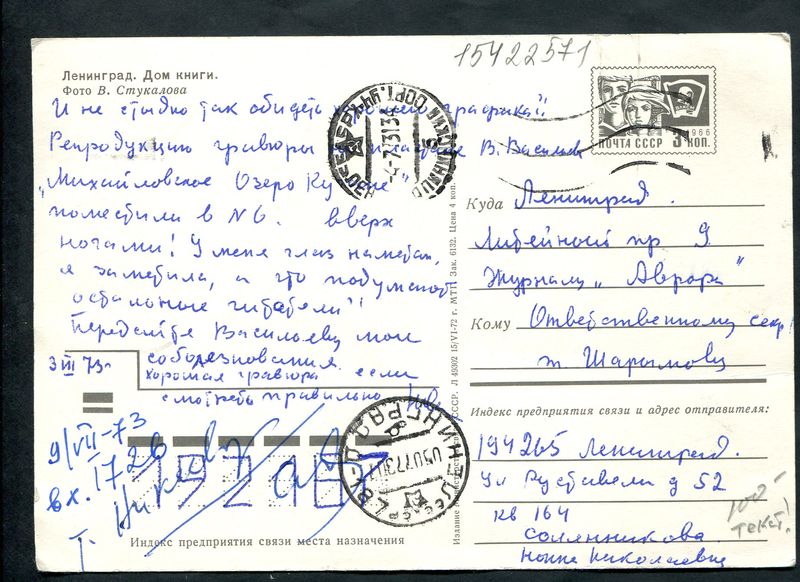 15422571
Ленинград. Дом книги.
Фото В. Стукалова
И не стыдно так обидеть графика"!
Репродукцию гравюры В. Васильев
"Михайловское Озеро Кучане"
поместили в N6. вверх
ногами! У меня глаз наметан,
я заметила, а что подумают
остальные читатели"!
Передайте Васильеву мои
соболезнования.
3 III 73г.
хорошая гравюра если
смотреть правильно
9/VII-73
вх. 1726
192187
Индекс предприятия связи места назначения
ПОЧТА СССР 3 КОП.
1966
Куда Ленинград.
Литейный пр 9
Журналу "Аврора"
Кому Ответственному секр!
т. Шарымову
Индекс предприятия связи и адрес отправителя:
194265 Ленинград.
ул Руставели д 52
кв 164
Солянникова
Нонна Николаевна
100-
текст!
СССР. Л 49302 15/VI-72 г. МТГ Зак. 6132. Цена 4 коп.